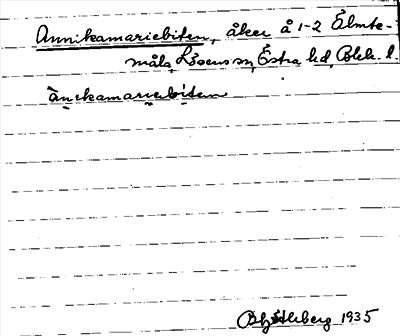 Annikamariebiten, åker å 1-2 Älmte-
måla, Lösens sn, Östra hd, Blek. l.
ànikamariebiten
1935